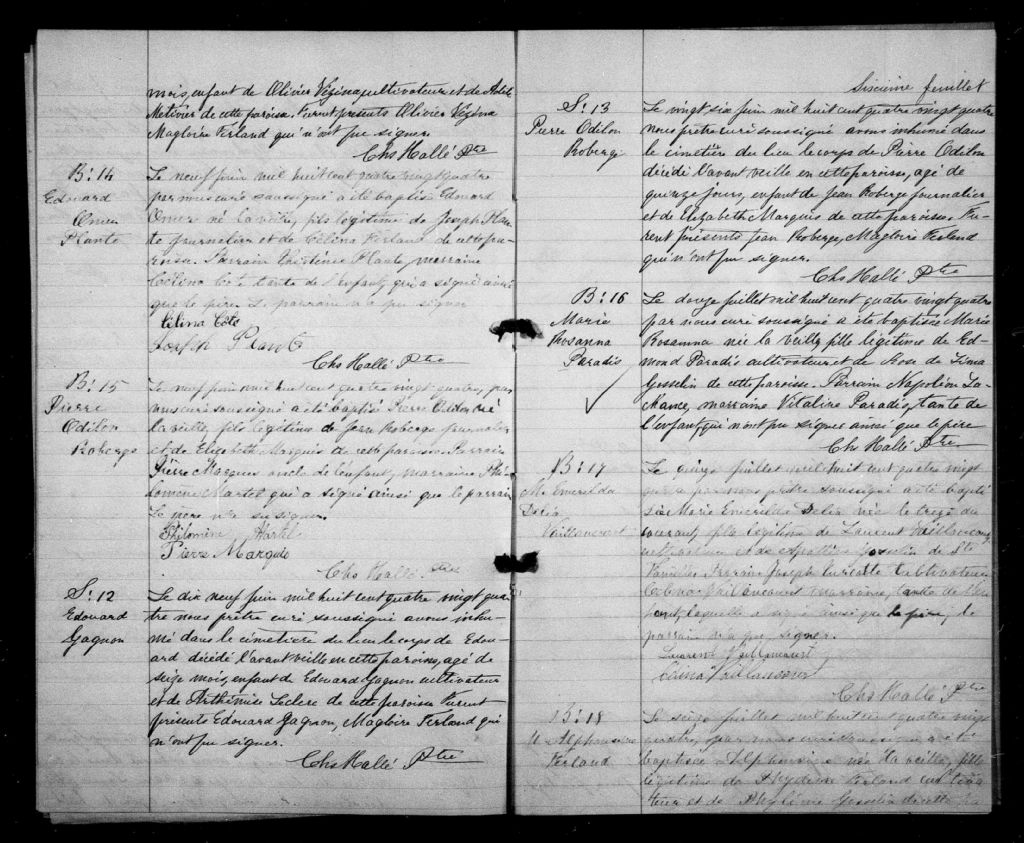 mois, enfant de Olivier Vézina cultivateur et de Adèle
Métivier de cette paroisse. Furent présents Olivier Vézina
Magloire Ferland qui n'ont pu signer.
Chs Hallé Ptre
B: 14
Edouard
Omer
Plante
Le neuf juin mil huit cent quatre vingt quatre
par nous curé soussigné a été baptisé Edouard
Omer né la veille, fils légitime de Joseph Plan-
te journalier et de Célina Ferland de cette pa-
roisse. Parrain Plante, marraine
Célina Côté tante de l'enfant, qui a signé ainsi
que le père. Le parrain n'a pu signer
Célina Coté
Joseph Plante
Chs Hallé Ptre
B: 15
Pierre
Odilon
Roberge
Le neuf juin mil huit cent quatre vingt quatre, par
nous curé soussigné a été baptisé Pierre Odilon né
la veille, fils légitime de Jean Roberge journalier
et de Elizabeth Marquis de cette paroisse. Parrain
Pierre Marquis oncle de l'enfant, marraine Phi-
lomène Martel qui a signé ainsi que le parrain
Le père n'a su signer.
Philomène Martel
Pierre Marquis
Chs Hallé Ptre
S: 12
Edouard
Gagnon
Le dix neuf juin mil huit cent quatre vingt qua-
tre nous prêtre curé soussigné avons inhu-
mé dans le cimetière du lieu le corps de Edou-
ard décédé l'avant veille en cette paroisse, agé de
seize mois, enfant de Edouard Gagnon cultivateur
et de Arthémise Leclerc de cette paroisse Furent
présents Edouard Gagnon, Magloire Ferland qui
n'ont pu signer.
Chs Hallé Ptre
Sixième feuillet
S: 13
Pierre Odilon
Roberge
Le vingt six juin mil huit cent quatre vingt quatre
nous prêtre curé soussigné avons inhumé dans
le cimetière du lieu le corps de Pierre Odilon
décédé l'avant veille en cette paroisse, agé de
quinze jours, enfant de Jean Roberge journalier
et de Elizabeth Marquis de cette paroisse. Fu-
rent présents Jean Roberge, Magloire Ferland
qui n'ont pu signer.
Chs Hallé Ptre
B: 16
Marie
Rosanna
Paradis
Le douze juillet mil huit cent quatre vingt quatre
par nous curé soussigné a été baptisée Marie
Rosanna née la veille, fille légitime de Ed-
mond Paradis cultivateur et de Rose de Lima
Gosselin de cette paroisse. Parrain Napoléon La-
chance, marraine Vitaline Paradis, tante de
l'enfant, qui n'ont pu signer ainsi que le père
Chs Hallé Ptre
B: 17
M. Emerilda
Délia
Vaillancourt
Le quinze juillet mil huit cent quatre vingt
quatre par nous prêtre soussigné a été bapti-
sée Marie Emerilda Délia née le treize du
courant, fille légitime de Laurent Vaillancourt
et de Gosselin de Ste
Parrain Joseph Turcotte Cultivateur
Vaillancourt marraine, tante de l'en-
fant, laquelle a signé ainsi que le père, le
parrain n'a pu signer.
Laurent Vaillancourt
Vaillancourt
Chs Hallé Ptre
B: 18
M. Alphonsine
Ferland
Le seize juillet mil huit cent quatre vingt
quatre, par nous curé soussigné a été
baptisée Alphonsine née la veille, fille
légitime de Ferland cultiva-
teur et de Gosselin de cette pa